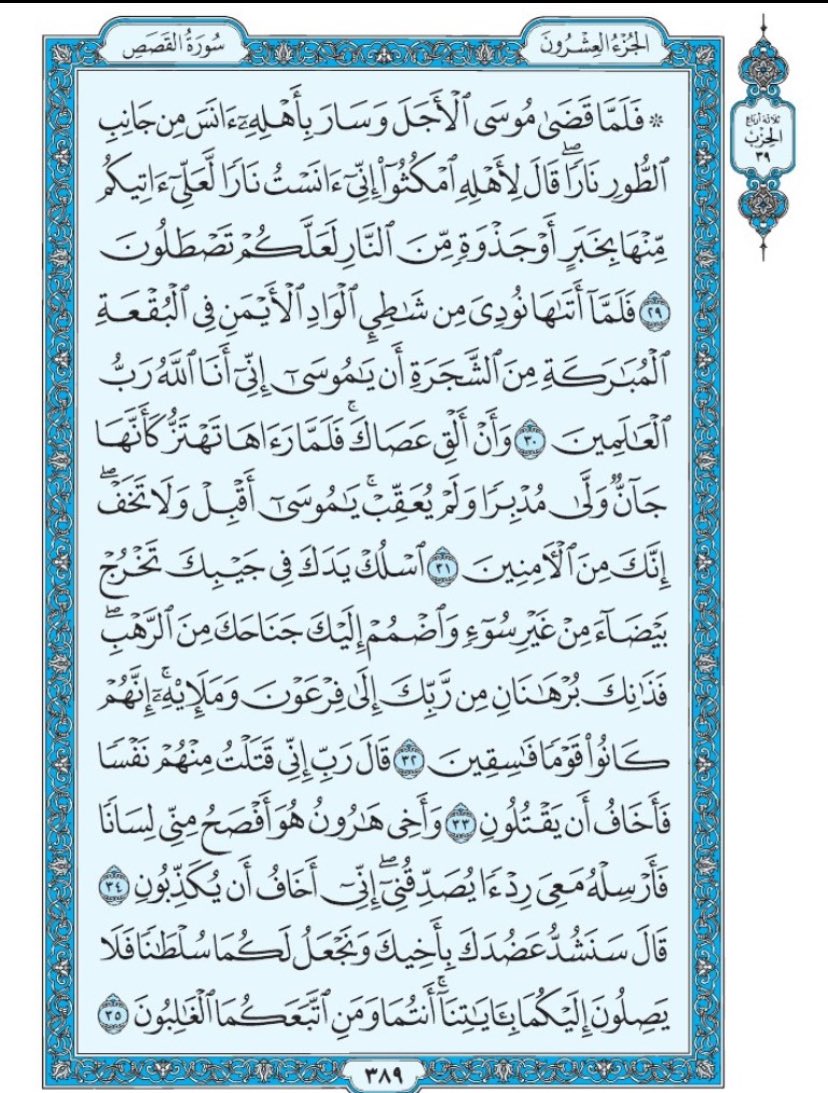 الجُزْءُ العِشْرُونَ
سُورَةُ القَصَصِ
ثلاثة أرباع
الحِزْب
٣٩
۞ فَلَمَّا قَضَىٰ مُوسَى ٱلْأَجَلَ وَسَارَ بِأَهْلِهِۦٓ ءَانَسَ مِن جَانِبِ
ٱلطُّورِ نَارًاۖ قَالَ لِأَهْلِهِ ٱمْكُثُوٓا۟ إِنِّىٓ ءَانَسْتُ نَارًا لَّعَلِّىٓ ءَاتِيكُم
مِّنْهَا بِخَبَرٍ أَوْ جَذْوَةٍ مِّنَ ٱلنَّارِ لَعَلَّكُمْ تَصْطَلُونَ
٢٩ فَلَمَّآ أَتَىٰهَا نُودِىَ مِن شَـٰطِئِ ٱلْوَادِ ٱلْأَيْمَنِ فِى ٱلْبُقْعَةِ
ٱلْمُبَـٰرَكَةِ مِنَ ٱلشَّجَرَةِ أَن يَـٰمُوسَىٰٓ إِنِّىٓ أَنَا ٱللَّهُ رَبُّ
ٱلْعَـٰلَمِينَ ٣٠ وَأَنْ أَلْقِ عَصَاكَۚ فَلَمَّا رَءَاهَا تَهْتَزُّ كَأَنَّهَا
جَآنٌّ وَلَّىٰ مُدْبِرًا وَلَمْ يُعَقِّبْۚ يَـٰمُوسَىٰٓ أَقْبِلْ وَلَا تَخَفْۖ
إِنَّكَ مِنَ ٱلْـَٔامِنِينَ ٣١ ٱسْلُكْ يَدَكَ فِى جَيْبِكَ تَخْرُجْ
بَيْضَآءَ مِنْ غَيْرِ سُوٓءٍ وَٱضْمُمْ إِلَيْكَ جَنَاحَكَ مِنَ ٱلرَّهْبِۖ
فَذَٰنِكَ بُرْهَـٰنَانِ مِن رَّبِّكَ إِلَىٰ فِرْعَوْنَ وَمَلَإِي۟هِۦٓۚ إِنَّهُمْ
كَانُوا۟ قَوْمًا فَـٰسِقِينَ ٣٢ قَالَ رَبِّ إِنِّى قَتَلْتُ مِنْهُمْ نَفْسًا
فَأَخَافُ أَن يَقْتُلُونِ ٣٣ وَأَخِى هَـٰرُونُ هُوَ أَفْصَحُ مِنِّى لِسَانًا
فَأَرْسِلْهُ مَعِىَ رِدْءًا يُصَدِّقُنِىٓۖ إِنِّىٓ أَخَافُ أَن يُكَذِّبُونِ ٣٤
قَالَ سَنَشُدُّ عَضُدَكَ بِأَخِيكَ وَنَجْعَلُ لَكُمَا سُلْطَـٰنًا فَلَا
يَصِلُونَ إِلَيْكُمَا بِـَٔايَـٰتِنَآۚ أَنتُمَا وَمَنِ ٱتَّبَعَكُمَا ٱلْغَـٰلِبُونَ ٣٥
٣٨٩